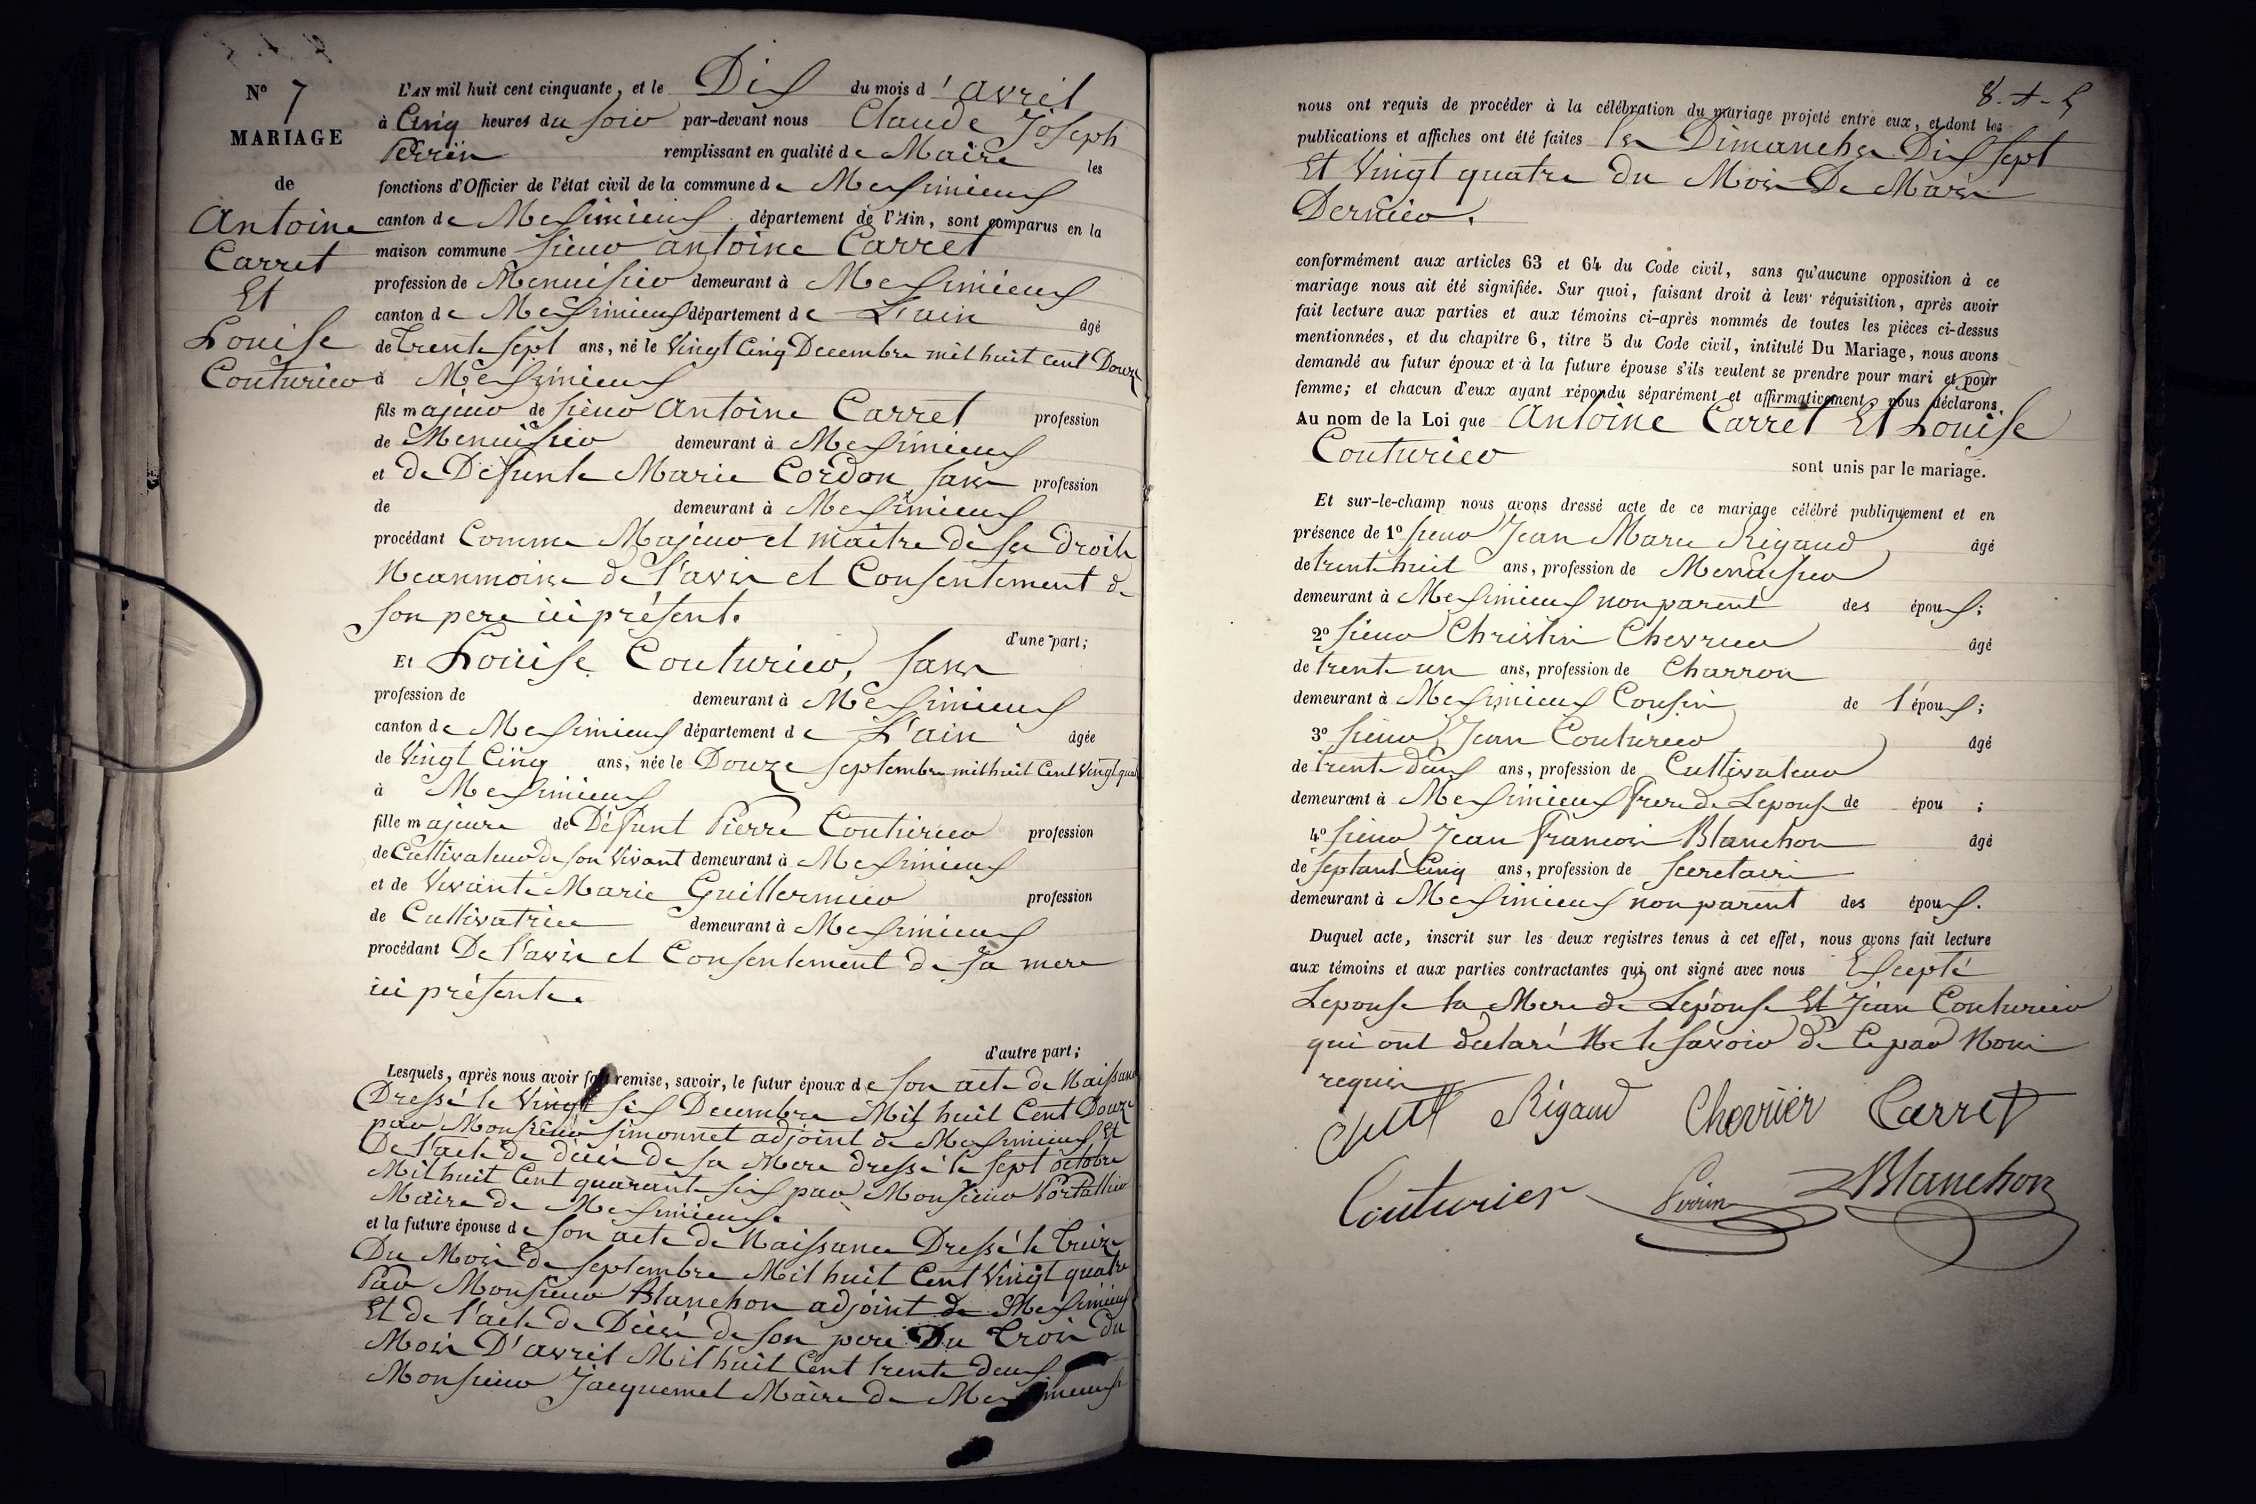 N° 7
MARIAGE
de
Antoine
Carret
Et
Louise
Couturier
L'AN mil huit cent cinquante, et le Dix du mois d'avril
à Cinq heures du soir par-devant nous Claude Joseph
Perrin remplissant en qualité de Maire les
fonctions d'Officier de l'état civil de la commune de Meximieux
canton de Meximieux département de l'Ain, sont comparus en la
maison commune sieur antoine Carret
profession de Menuisier demeurant à Meximieux
canton de Meximieux département de L'ain âgé
de trente sept ans, né le Vingt Cinq Decembre mil huit cent Douze
à Meximieux
fils majeur de sieur Antoine Carret profession
de Menuisier demeurant à Meximieux
et de Défunte Marie Cordon sans profession
de demeurant à Meximieux
procédant Comme Majeur et maitre de ses droits
Neanmoins de l'avis et Consentement de
son pere ici présent.
d'une part;
Et Louise Couturier, sans
profession de demeurant à Meximieux
canton de Meximieux département de L'ain âgée
de Vingt Cinq ans, née le Douze septembre mil huit Cent Vingt quatre
à Meximieux
fille majeure de Défunt Pierre Couturier profession
de Cultivateur de son Vivant demeurant à Meximieux
et de Vivante Marie Guillermier profession
de Cultivatrice demeurant à Meximieux
procédant De l'avis et Consentement de sa mere
ici présente.
d'autre part;
Lesquels, après nous avoir fait remise, savoir, le futur époux de son acte de Naissance
Dressé le Vingt six Decembre Mil huit Cent Douze
par Monsieur simonnet adjoint de Meximieux Et
De l'acte de décès de sa Mere dressé le sept octobre
Mil huit Cent quarante six par Monsieur Portallier
Maire de Meximieux.
et la future épouse de son acte de Naissance Dressé le treize
Du Mois de septembre Mil huit Cent Vingt quatre
Par Monsieur Blanchon adjoint de Meximieux
Et de l'acte de Décès de son pere Du trois du
Mois D'avril Mil huit Cent trente deux
Monsieur Jacquemet Maire de Meximieux
8. A. 5
nous ont requis de procéder à la célébration du mariage projeté entre eux, et dont les
publications et affiches ont été faites les Dimanches Dix sept
Et Vingt quatre du Mois De Mars
Dernier.
conformément aux articles 63 et 64 du Code civil, sans qu'aucune opposition à ce
mariage nous ait été signifiée. Sur quoi, faisant droit à leur réquisition, après avoir
fait lecture aux parties et aux témoins ci-après nommés de toutes les pièces ci-dessus
mentionnées, et du chapitre 6, titre 5 du Code civil, intitulé Du Mariage, nous avons
demandé au futur époux et à la future épouse s'ils veulent se prendre pour mari et pour
femme; et chacun d'eux ayant répondu séparément et affirmativement, nous déclarons,
Au nom de la Loi que Antoine Carret Et Louise
Couturier sont unis par le mariage.
Et sur-le-champ nous avons dressé acte de ce mariage célébré publiquement et en
présence de 1° sieur Jean Marie Rigaud âgé
de trente huit ans, profession de Menuisier
demeurant à Meximieux non parent des époux;
2° sieur Christin Chevrier âgé
de trente un ans, profession de Charron
demeurant à Meximieux Cousin de l'époux;
3° sieur Jean Couturier âgé
de trente deux ans, profession de Cultivateur
demeurant à Meximieux frere de Lepouse de épou ;
4° sieur Jean francois Blanchon âgé
de septante Cinq ans, profession de secretaire
demeurant à Meximieux non parent des époux.
Duquel acte, inscrit sur les deux registres tenus à cet effet, nous avons fait lecture
aux témoins et aux parties contractantes qui ont signé avec nous Excepté
Lepouse la Mere de Lépouse Et Jean Couturier
qui ont déclaré Ne le savoir de Ce par Nous
requis
Rigaud Chevrier Carret
Couturier Perrin Blanchon